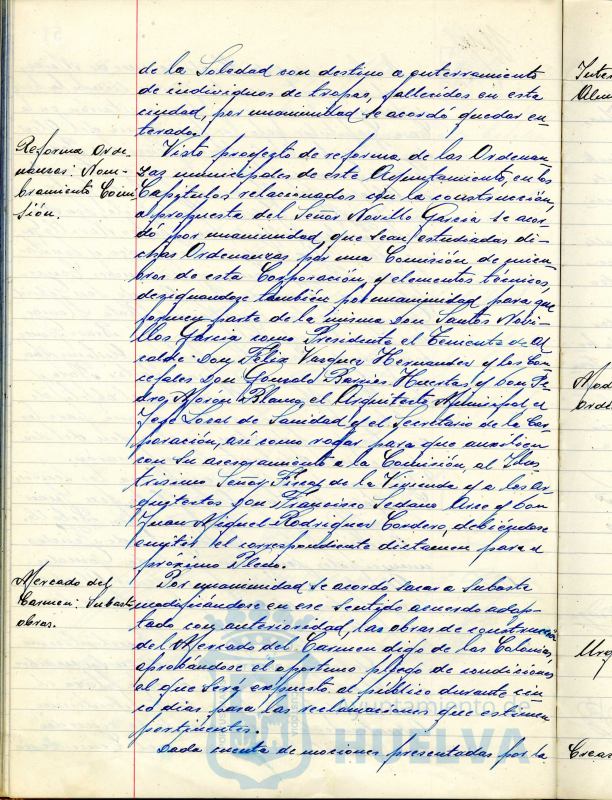 de la Soledad con destino a enterramiento
de individuos de tropas, fallecidos en esta
ciudad, por unanimidad se acordó quedar en-
terados.
Reforma Orde-
nanzas: Nom-
bramiento Comi-
sión.
Visto proyecto de reforma de las Ordenan
zas municipales de este Ayuntamiento, en los
Capítulos relacionados con la construcción,
a propuesta del Señor Novillo García se acor-
dó por unanimidad, que sean estudiadas di-
chas Ordenanzas por una Comisión de miem-
bros de esta Corporación y elementos técnicos,
designandose también por unanimidad para que
formen parte de la misma Don Santos Novi-
llos García como Presidente el Teniente de Al
calde: Don Felix Vazquez Hernandez y los Con-
cejales Don Gonzalo Barrios Huertas y Don Pe-
dro Morón Blanco, el Arquitecto Municipal, el
Jefe Local de Sanidad y el Secretario de la Cor-
poración, así como rogar para que auxilien
con su asesoramiento a la Comisión, al Ilus
trisimo Señor Fiscal de la Vivienda y a los ar-
quitectos Don Francisco Sedano Arce y Don
Juan Miguel Rodriguez Cordero, debiéndose
emitir el correspondiente dictamen para el
próximo Pleno.
Mercado del
Carmen: Subasta
obras.
Por unanimidad se acordó sacar a subasta
modificándose en ese sentido acuerdo adop-
tado con anterioridad, las obras de construcción
del Mercado del Carmen digo de las Colonias,
aprobandose el oportuno pliego de condiciones
el que será expuesto al público durante cin-
co dias para las reclamaciones que estimen
pertinentes.
Dada cuenta de mociones presentadas por la
Ayuntamiento de
HUELVA